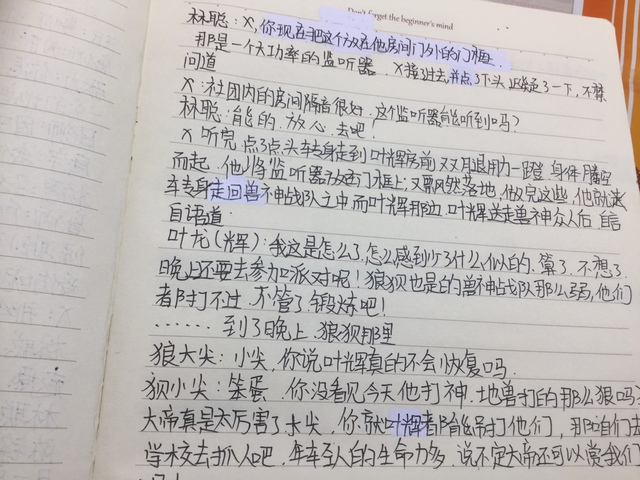 Don't forget the beginner's mind
林聪：X，你现在把这个放在他房间门外的门框
那是一个大功率的监听器. X接了过去，并点了下头，迟疑了一下，不禁
问道
X：社团内的房间隔音很好. 这个监听器能听到吗？
林聪：能的. 放心. 去吧！
X听完点了点头转身走到叶辉房前双腿用力一蹬 身体腾空
而起. 他将监听器放在门框上，又飘然落地，做完这些，他就
转身走回兽神战队之中 而叶辉那边. 叶辉送走兽神众人后，自言
自语道.
叶龙（辉）：我这是怎么了. 怎么感到少了什么似的. 算了. 不想了.
晚上还要去参加派对呢！狼狈也是的兽神战队那么弱，他们
都打不过. 不管了. 锻炼吧！
…… 到了晚上. 狼狈那里
狼大尖：小尖，你说叶辉真的不会恢复吗.
狈小尖：笨蛋. 你没看见今天他打神. 地兽打的那么狠吗
大帝真是太厉害了大尖，你就叶辉都能吊打他们，那咱们去
学校去抓人吧. 年轻人的生命力多. 说不定大帝还可以赏我们